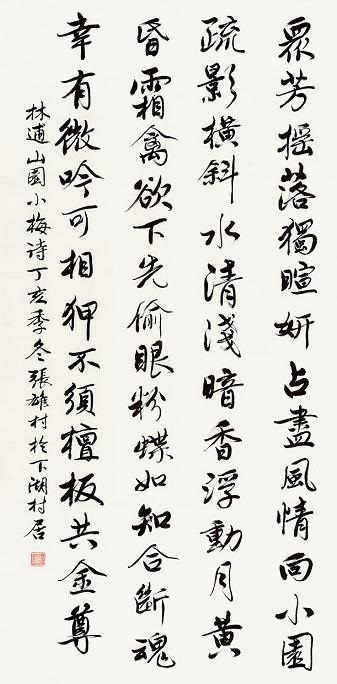 眾芳搖落獨暄妍占盡風情向小園
疏影橫斜水清淺暗香浮動月黃
昏霜禽欲下先偷眼粉蝶如知合斷魂
幸有微吟可相狎不須檀板共金尊
林逋山園小梅诗丁亥季冬張雄村於下湖村居